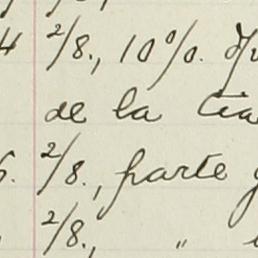 4 2/8., 10%.
de la
5. 2/8., parte
2/8., "